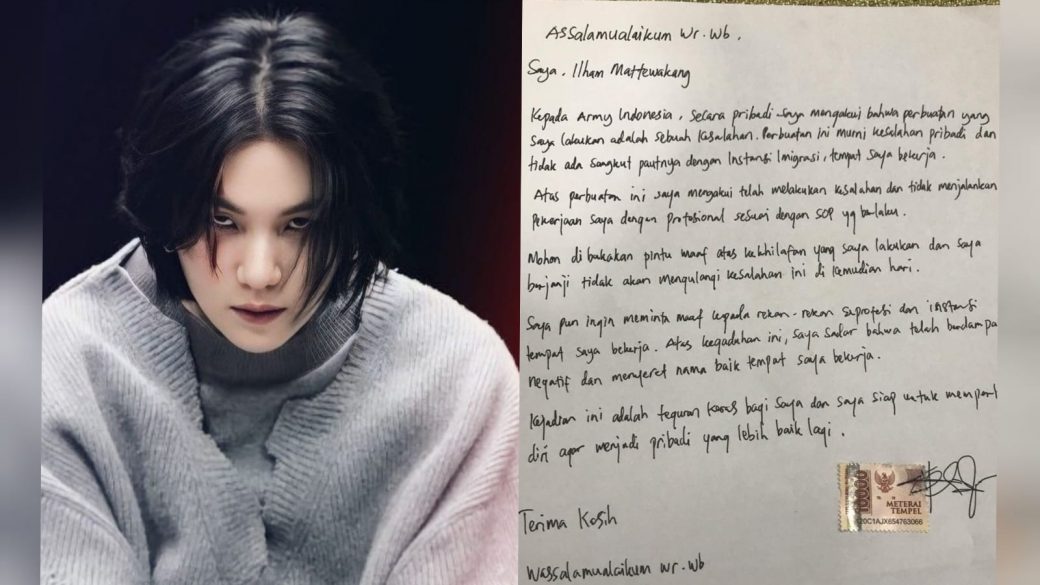 Assalamualaikum Wr. Wb.
Saya, Ilham Mattewakang
Kepada Army Indonesia, secara pribadi saya mengakui bahwa perbuatan yang
saya lakukan adalah sebuah kesalahan. Perbuatan ini murni kesalahan pribadi dan
tidak ada sangkut pautnya dengan Instansi Imigrasi, tempat saya bekerja.
Atas perbuatan ini saya mengakui telah melakukan kesalahan dan tidak menjalankan
pekerjaan saya dengan profesional sesuai dengan SOP yg berlaku.
Mohon di bukakan pintu maaf atas kekhilafan yang saya lakukan dan saya
berjanji tidak akan mengulangi kesalahan ini di kemudian hari.
Saya pun ingin meminta maaf kepada rekan-rekan seprofesi dan instansi
tempat saya bekerja. Atas kegaduhan ini, saya sadar bahwa telah berdampa
negatif dan menyeret nama baik tempat saya bekerja.
Kejadian ini adalah teguran keras bagi saya dan saya siap untuk
diri agar menjadi pribadi yang lebih baik lagi.
10000
METERAI
TEMPEL
C20C1AJX654763066
Terima Kasih
Wassalamualaikum Wr. Wb